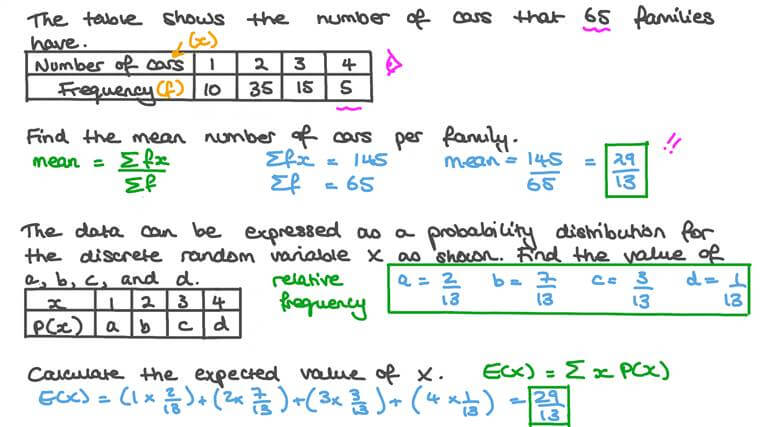 The table shows the number of cars that 65 families
have. (x)
Number of cars 1 2 3 4
Frequency (f) 10 35 15 5
Find the mean number of cars per family. !!
mean = Σfx / Σf Σfx = 145 Σf = 65 mean = 145/65 = 29/13
The data can be expressed as a probability distribution for
the discrete random variable X as shown. Find the value of
a, b, c, and d. relative frequency a = 2/13 b = 7/13 c = 3/13 d = 1/13
x 1 2 3 4
P(x) a b c d
Calculate the expected value of X. E(x) = Σ x P(x)
E(x) = (1 × 2/13) + (2 × 7/13) + (3 × 3/13) + (4 × 1/13) = 29/13